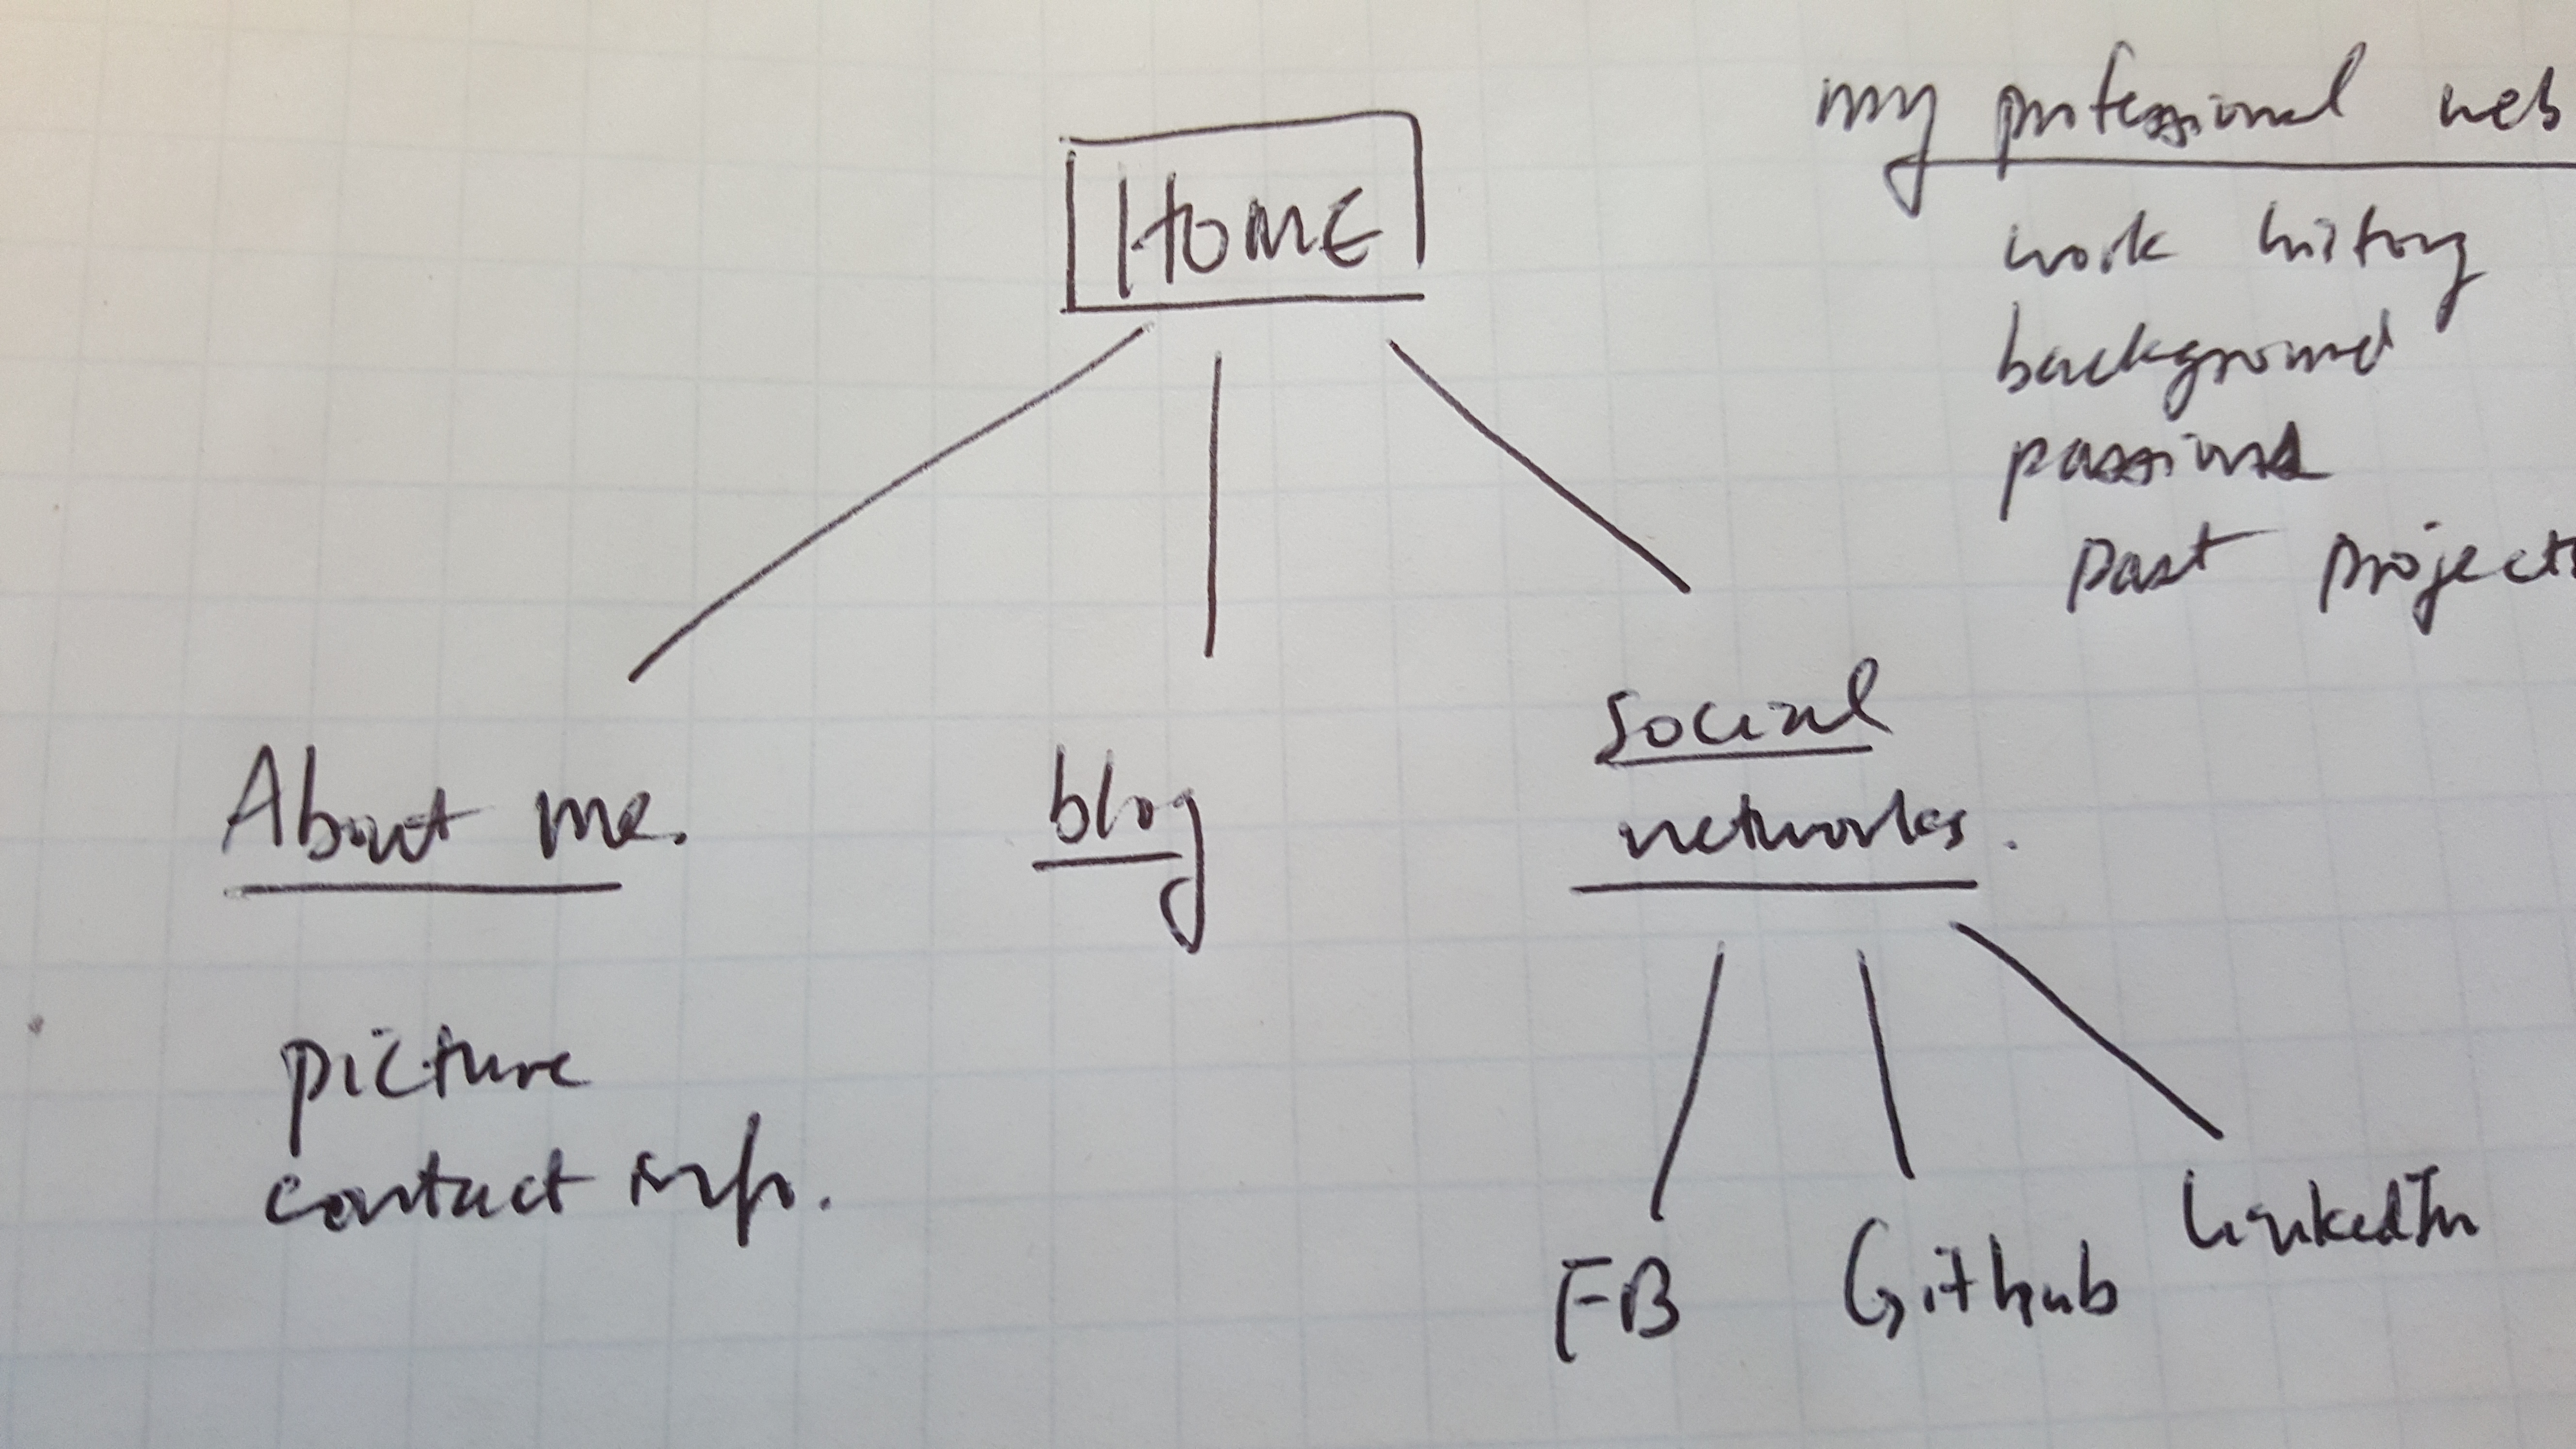 my professional web
work history
background
passions
past projects
HOME
About me.
picture
contact info.
blog
social
networks.
FB
Github
LinkedIn